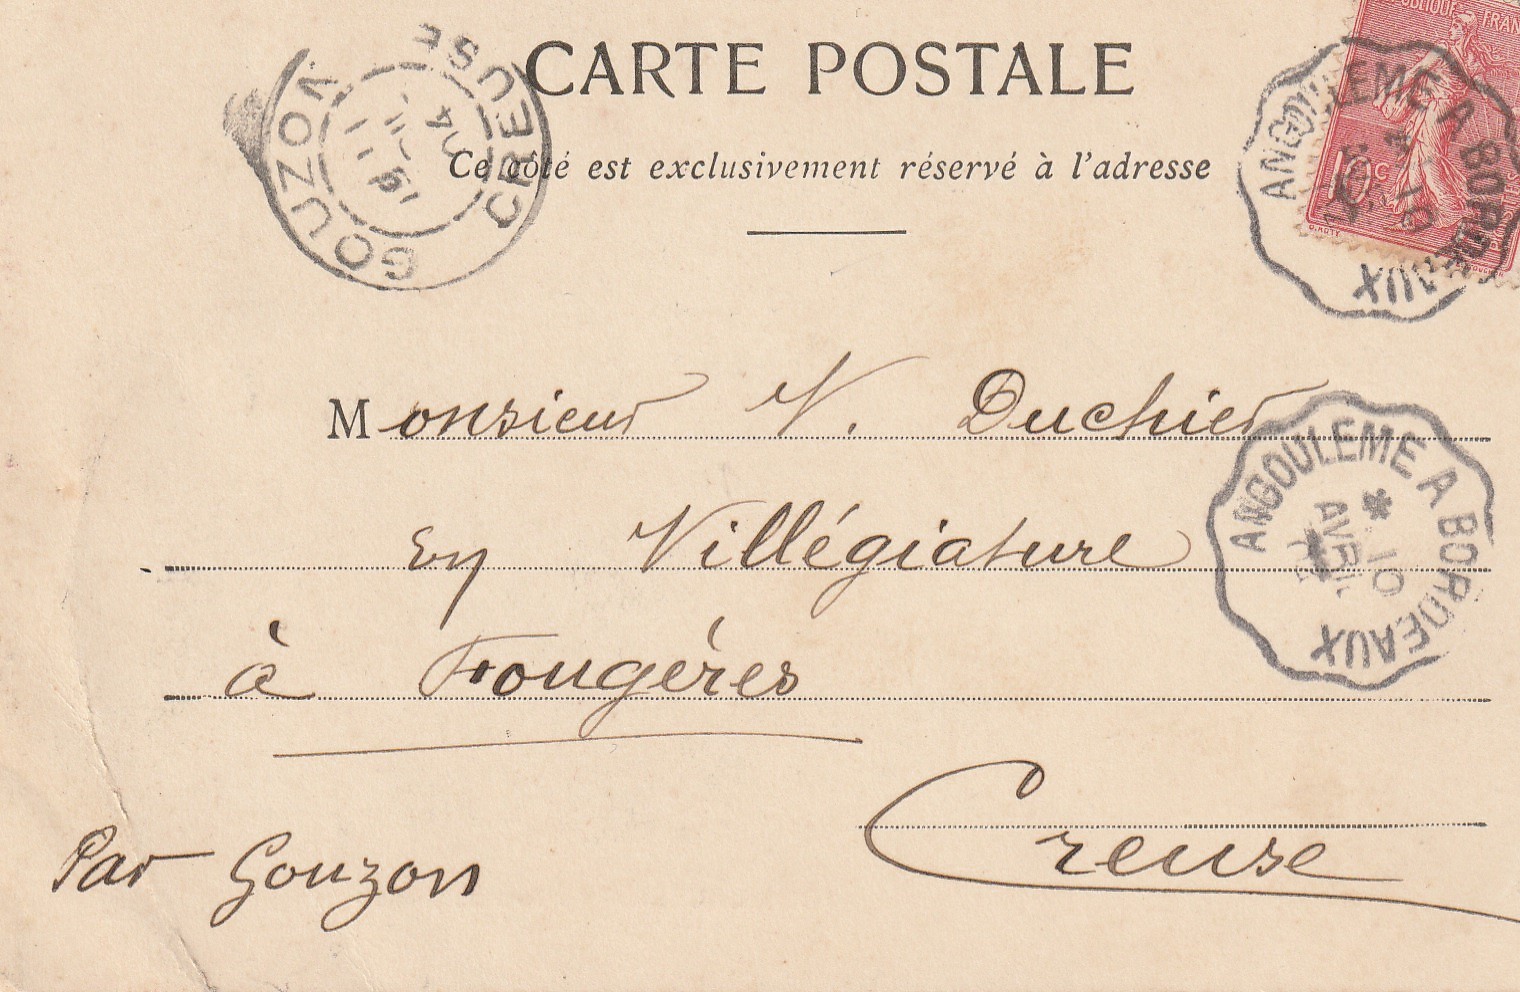 CARTE POSTALE
Ce côté est exclusivement réservé à l'adresse
RÉPUBLIQUE FRAN
10 c
O. ROTY
GOUZON CREUSE
04
ANGOULEME A BORDEAUX
10
Monsieur V. Duchier
en Villégiature
à Fougères
Creuse
Par Gouzon
ANGOULEME A BORDEAUX
*
10
AVRIL